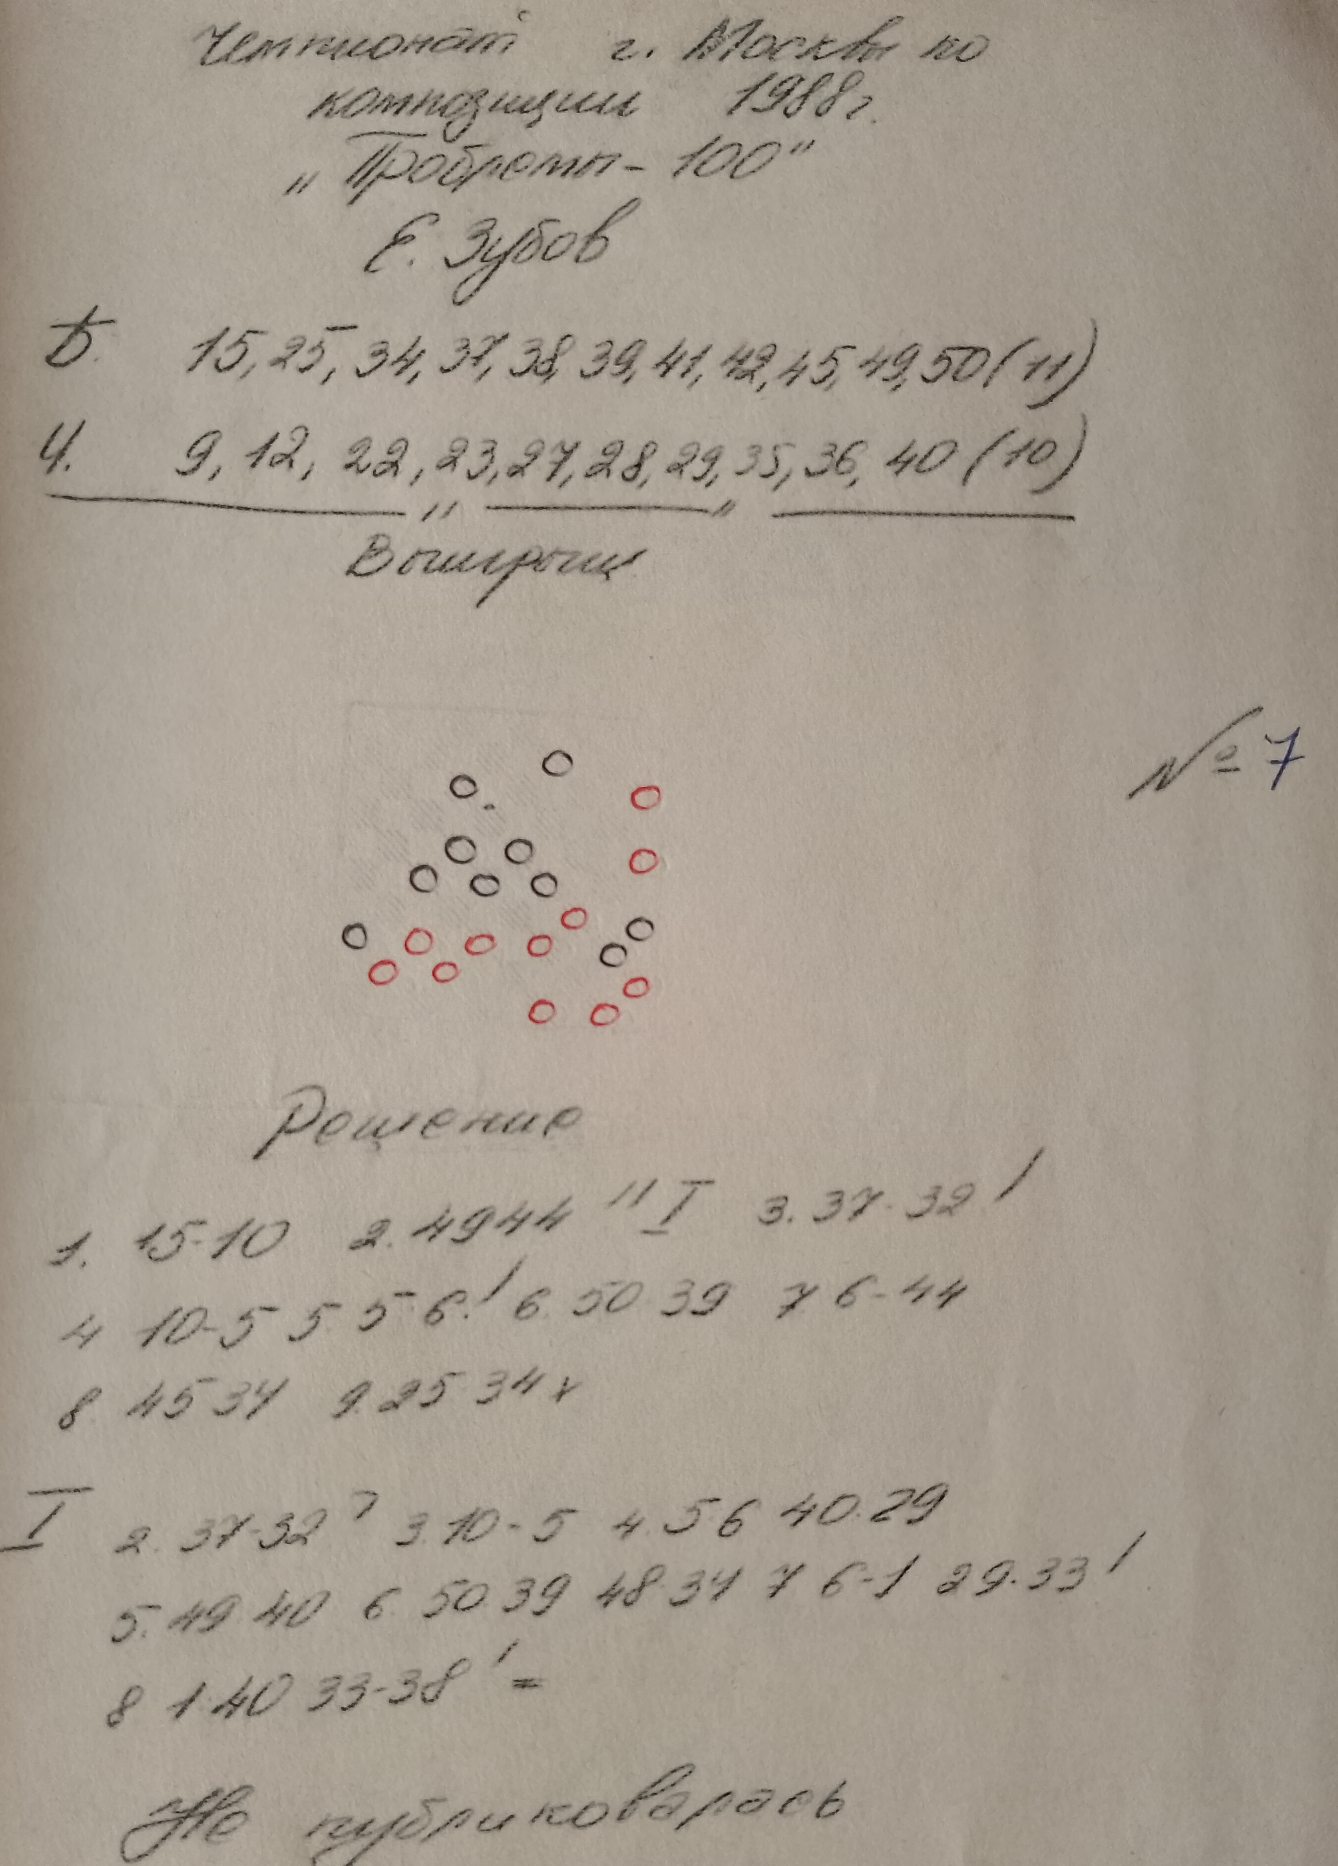 Чемпионат г. Москвы по
композиции 1988г.
„Проблемы-100"
Е. Зубов
Б. 15, 25, 34, 37, 38, 39, 41, 42, 45, 49, 50 (11)
Ч. 9, 12, 22, 23, 27, 28, 29, 35, 36, 40 (10)
Выигрыш
№ 7
Решение
1. 15-10 2. 49 44 " I 3. 37-32!
4 10-5 5. 5-6! 6. 50 39 7 6-44
8 45 34 9. 25 34 x
I 2. 37-32? 3. 10-5 4. 5 6 40.29
5. 49 40 6. 50.39 48.34 7 6-1 29.33!
8 1.40 33-38! =
Не публиковалась